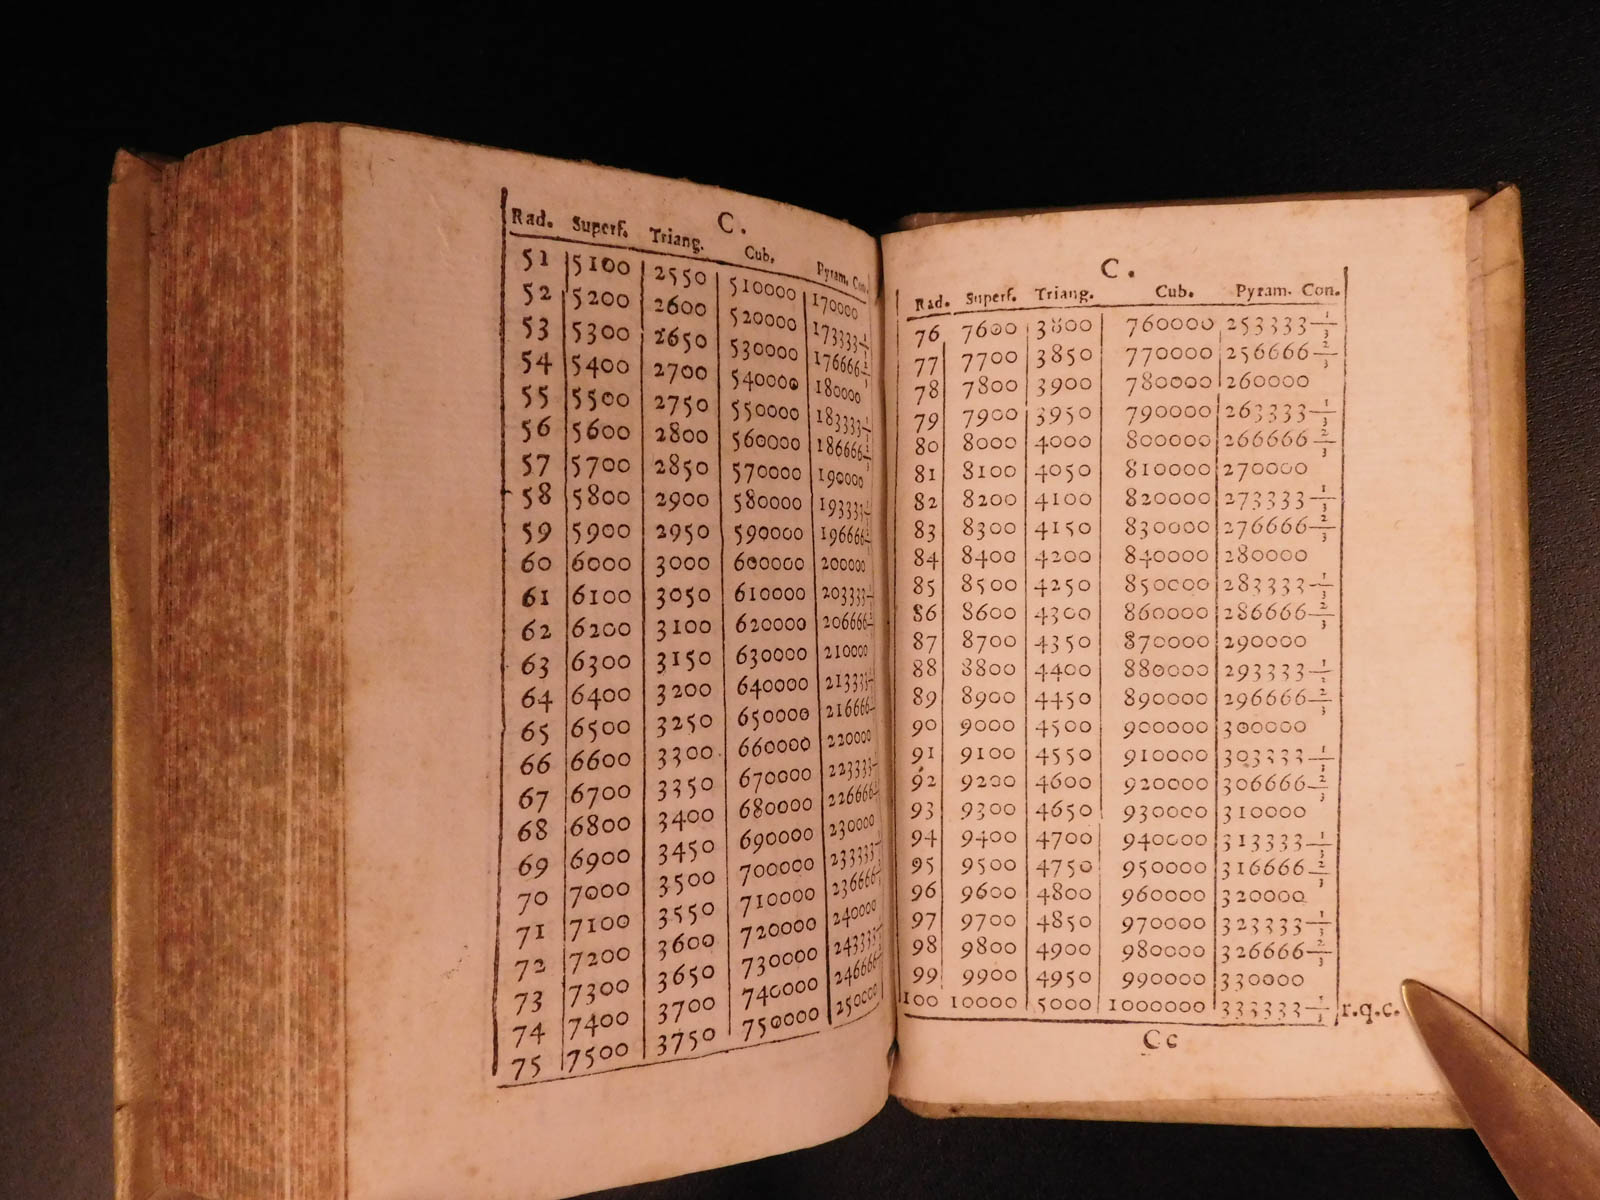 C.
Rad. Superf. Triang. Cub. Pyram. Con.
51 5100 2550 510000 170000
52 5200 2600 520000 173333 1/3
53 5300 2650 530000 176666 2/3
54 5400 2700 540000 180000
55 5500 2750 550000 183333 1/3
56 5600 2800 560000 186666 2/3
57 5700 2850 570000 190000
58 5800 2900 580000 193333 1/3
59 5900 2950 590000 196666 2/3
60 6000 3000 600000 200000
61 6100 3050 610000 203333 1/3
62 6200 3100 620000 206666 2/3
63 6300 3150 630000 210000
64 6400 3200 640000 213333 1/3
65 6500 3250 650000 216666 2/3
66 6600 3300 660000 220000
67 6700 3350 670000 223333 1/3
68 6800 3400 680000 226666 2/3
69 6900 3450 690000 230000
70 7000 3500 700000 233333 1/3
71 7100 3550 710000 236666 2/3
72 7200 3600 720000 240000
73 7300 3650 730000 243333 1/3
74 7400 3700 740000 246666 2/3
75 7500 3750 750000 250000
C.
Rad. Superf. Triang. Cub. Pyram. Con.
76 7600 3800 760000 253333 1/3
77 7700 3850 770000 256666 2/3
78 7800 3900 780000 260000
79 7900 3950 790000 263333 1/3
80 8000 4000 800000 266666 2/3
81 8100 4050 810000 270000
82 8200 4100 820000 273333 1/3
83 8300 4150 830000 276666 2/3
84 8400 4200 840000 280000
85 8500 4250 850000 283333 1/3
86 8600 4300 860000 286666 2/3
87 8700 4350 870000 290000
88 8800 4400 880000 293333 1/3
89 8900 4450 890000 296666 2/3
90 9000 4500 900000 300000
91 9100 4550 910000 303333 1/3
92 9200 4600 920000 306666 2/3
93 9300 4650 930000 310000
94 9400 4700 940000 313333 1/3
95 9500 4750 950000 316666 2/3
96 9600 4800 960000 320000
97 9700 4850 970000 323333 1/3
98 9800 4900 980000 326666 2/3
99 9900 4950 990000 330000
100 10000 5000 1000000 333333 1/3 r.q.c.
Cc